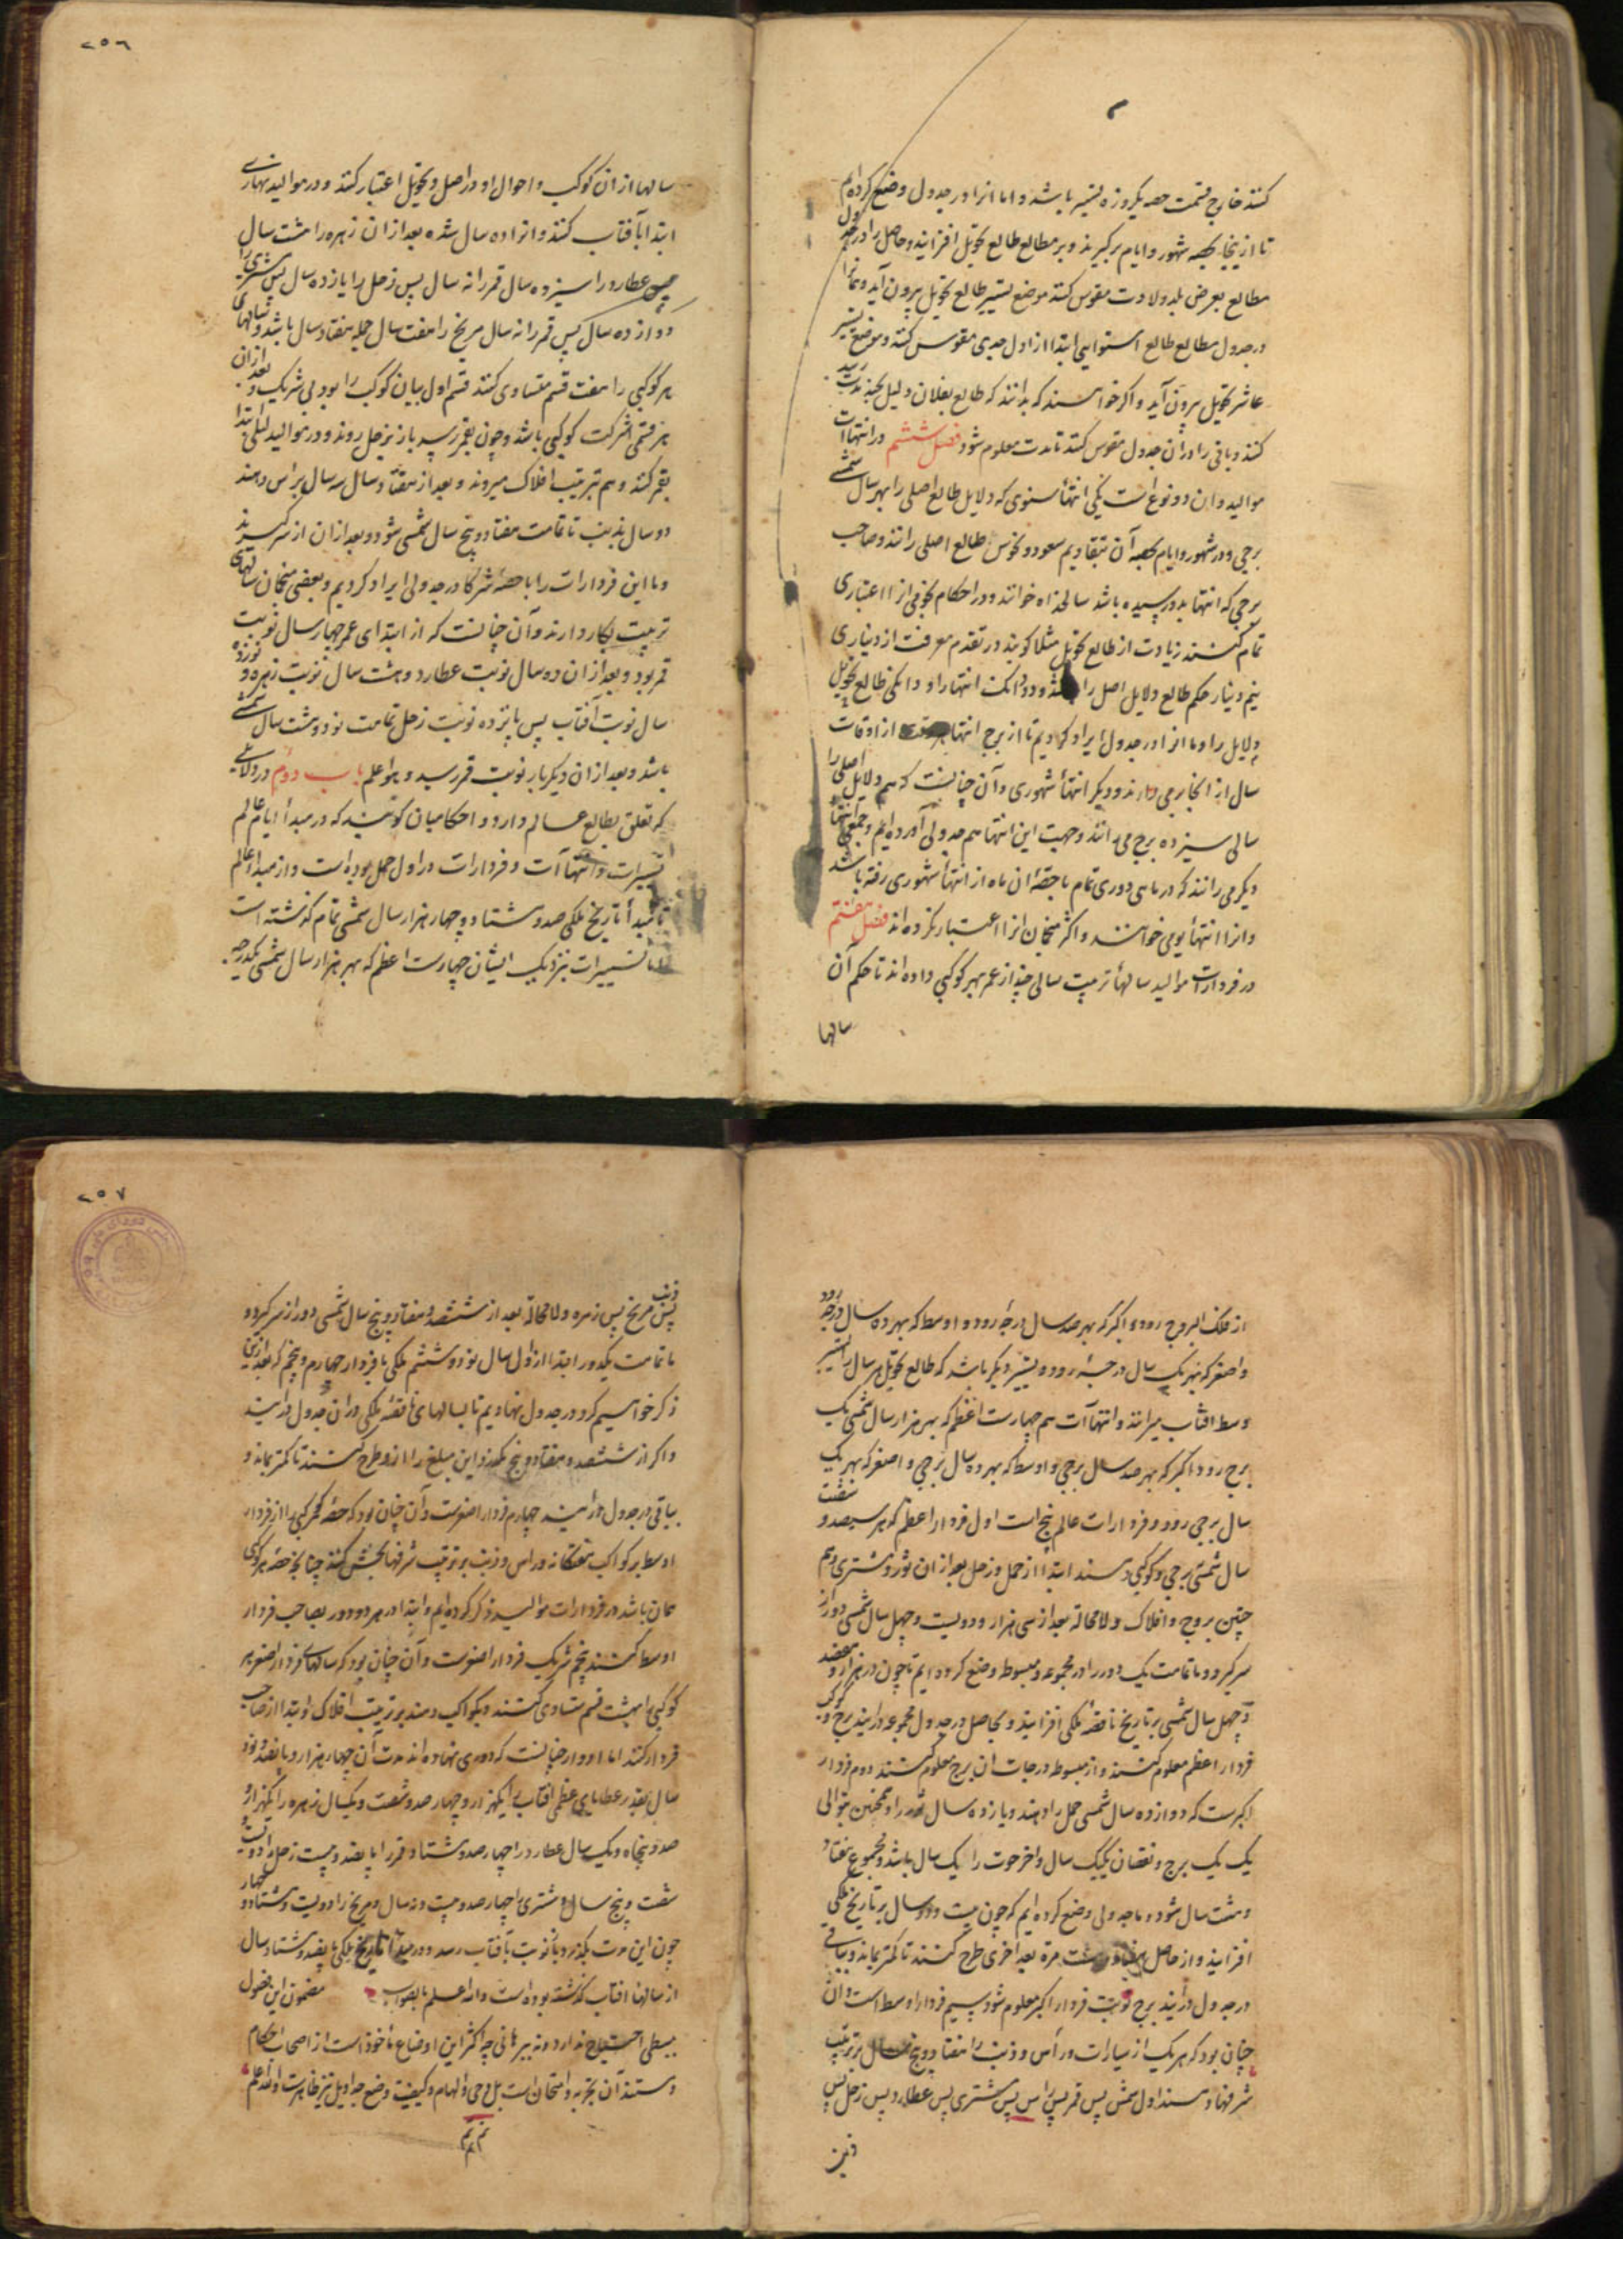 کنند خارج قسمت حصه یکروزه تسییر باشد و ما انرا در جدول وضع کرده‌ایم
تا از اینجا بحصه شهور و ایام برگیرند و بر مطالع طالع تحویل افزایند و حاصل را در جدول
مطالع بعرض بلد ولادت مقوس کنند موضع تسییر طالع تحویل بیرون آید و
در جدول مطالع طالع استوایی ابتدا از اول جدی مقوس کنند و موضع تسییر
عاشر تحویل بیرون آید و اگر خواهند که بدانند که طالع بفلان دلیل بچند مدت رسد
کنند و باقی را در ان جدول مقوس کنند تا مدت معلوم شود فصل ششم در انتهاآت
موالید و ان دو نوع است یکی انتهاء سنوی که دلایل طالع اصلی را بهر سال شمسی
برجی و در شهور و ایام بحصه آن بتقاویم سعود و نحوس طالع اصلی رانند و صاحب
برجی که انتها بدو رسیده باشد سالخداه خوانند و در احکام نجومی انرا اعتباری
تمام کنند زیادت از طالع تحویل مثلا کویند در تقدم معرفت از دیناری
نیم دینار حکم طالع دلایل اصل را باشد و دو دانک انتها را و دانکی طالع تحویل
دلایل را و ما انرا در جدول ایراد کردیم تا از برج انتها از اوقات
سال از انجا بر می دارند و دیکر انتهاء شهوری و آن چنانست که هم دلایل اصلی را
سالی سیزده برج می رانند و جهت این انتها هم جدولی آورده‌ایم و جمعی انتها
دیکر می رانند که در ماهی دوری تمام با حصهٔ ان ماه از انتهاء شهوری رفته باشد
و انرا انتهاء یومی خوانند و اکثر منجمان انرا اعتبار نکرده‌اند فصل هفتم
در فردارات موالید سالهاء تربیت سالی چند از عمر بهر کوکبی داده‌اند تا حکم آن
سالها
۲۵۶
سالها از ان کوکب و احوال او در اصل و تحویل اعتبار کنند و در موالید نهاری
ابتدا بآفتاب کنند و انرا ده سال شده بعد از ان زهره را هشت سال
پس عطارد را سیزده سال قمر را نه سال پس زحل را یازده سال پس مشتری را
دوازده سال پس قمر را نه سال مریخ را هفت سال جمله هفتاد سال باشد و سالهای
هر کوکبی را هفت قسم متساوی کنند قسم اول بیان کوکب را بود بی شریک و بعد از ان
هر قسمی شرکت کوکبی باشد و چون بقمر رسد باز بزحل روند و در موالید لیلی ابتدا
بقمر کنند و هم بترتیب افلاک میروند و بعد از هفتاد سال سه سال براس دهند
دو سال بذنب تا تمامت هفتاد و پنج سال شمسی شود و بعد از ان از سر گیرند
و ما این فردارات را با حصهٔ شرکا در جدولی ایراد کردیم و بعضی منجمان سالهای
تربیت بکار دارند و آن چنانست که از ابتدای عمر چهار سال نوبت
قمر بود و بعد از ان ده سال نوبت عطارد و هشت سال نوبت زهره و نوزده
سال نوبت آفتاب پس پانزده نوبت زحل تمامت نود و هشت سال شمسی
باشد و بعد از ان دیکر بار نوبت قمر رسد و هو اعلم باب دوم در دلایلی
که تعلق بطالع عالم دارد و احکامیان کویند که در مبدأ ایام عالم
تسییرات و انتهاآت و فردارات در اول حمل بوده است و از مبدأ عالم
تا مبدأ تاریخ ملکی صد و هشتاد و چهار هزار سال شمسی تمام کذشته است
اما تسییرات بنزدیک ایشان چهارست اعظم که بهر هزار سال شمسی یکدرجه
از فلک البروج رود و اکبر که بهر صد سال درجهٔ رود و اوسط که بهر ده سال درجهٔ رود
و اصغر که بهر یک سال درجهٔ رود و تسییر دیکر باشد که طالع تحویل هر سال را بتسییر
وسط افتاب میرانند و انتهاآت هم چهارست اعظم که بهر هزار سال شمسی یک
برج رود اکبر که بهر صد سال برجی و اوسط که بهر ده سال برجی و اصغر که بهر یک
سال برجی رود و فردارات عالم پنج است اول فردار اعظم که هر سیصد و شصت
سال شمسی برجی و کوکبی دهند ابتدا از حمل و زحل بعد از ان ثور و مشتری و هم
چنین بروج و افلاک و لا محالة بعد از سی هزار و دویست و چهل سال شمسی دور از
سر گیرد و ما تمامت یک دور را در مجموعه و مبسوط وضع کرده‌ایم تا چون در هزار و هفصد
و چهل سال شمسی بر تاریخ ناقصهٔ ملکی افزایند و بحاصل در جدول مجموعه درایند برج و کوکب
فردار اعظم معلوم کنند و از مبسوط درجات ان برج معلوم کنند دوم فردار
اکبرست که دوازده سال شمسی حمل را دهند و یازده سال ثور را و همچنین بتوالی
یک یک برج و نقصان یک یک سال و اخر حوت را یک سال باشد و مجموع هفتاد
و هشت سال شود و ما جدولی وضع کرده‌ایم که چون بیست و دو سال بر تاریخ ملکی
افزایند و از حاصل هفتاد و هشت مرة بعد اخری طرح کنند تا کمتر بماند و بباقی
در جدول درایند برج نوبت فردار اکبر معلوم شود سیم فردار اوسط است و ان
چنان بود که هر یک از سیارات و راس و ذنب را هفتاد و پنج سال بر ترتیب
شرفها دهند اول شمس پس قمر پس راس پس مشتری پس عطارد پس زحل پس
ذنب
۲۵۷
ذنب پس مریخ پس زهره و لا محالة بعد از ششصد و هفتاد و پنج سال شمسی دور از سر گیرد و
ما تمامت یکدور ابتدا از اول سال نود و ششم ملکی با فردار چهارم و پنجم که بعد ازین
ذکر خواهیم کرد در جدول نهادیم تا بسالهای ناقصهٔ ملکی در ان جدول درایند
و اکر از ششصد و هفتاد و پنج بکذرد این مبلغ را ازو طرح کنند تا کمتر بماند و
بباقی در جدول درایند چهارم فردار اصغرست و آن چنان بود که حصهٔ هر کوکبی را از فردار
اوسط بر کواکب هفتکانه و راس و ذنب بر ترتیب شرفها بخش کنند چنانچه حصهٔ هر کوکبی
همان باشد در فردارات موالید ذکر کرده‌ایم و ابتدا در هر دو دور بصاحب فردار
اوسط کنند پنجم شریک فردار اصغرست و آن چنان بود که سالهای فردار اصغر هر
کوکبی را بهشت قسم متساوی کنند و بکواکب دهند بر ترتیب افلاک و ابتدا از صاحب
فردار کنند اما ادوار چنانست که دوری نهاده‌اند مدت آن چهار هزار و پانصد و نود
سال بقدر عطایای عظمی افتاب را یکهزار و چهار صد و شصت و یکسال زهره را یکهزار و
صد و پنجاه و یک سال عطارد را چهار صد و هشتاد و قمر را پانصد و بیست زحل را دویست
شصت و پنج سال و مشتری را چهار صد و بیست و نه سال و مریخ را دویست و هشتاد و چهار
چون این مدت بکذرد باز نوبت بآفتاب رسد و در مبدأ تاریخ ملکی پانصد و هشتاد و سال
از سالهاء افتاب کذشته بوده است والله اعلم بالصواب مضمون این فصول
ببسطی احتیاج ندارد و نه ببرهانی چه اکثر این اوضاع مأخوذ است از اصحاب احکام
و مستند آن تجربه و امتحان است بل وحی و الهام و کیفیت وضع جداویل نیز ظاهرست والله اعلم
تم تم تم